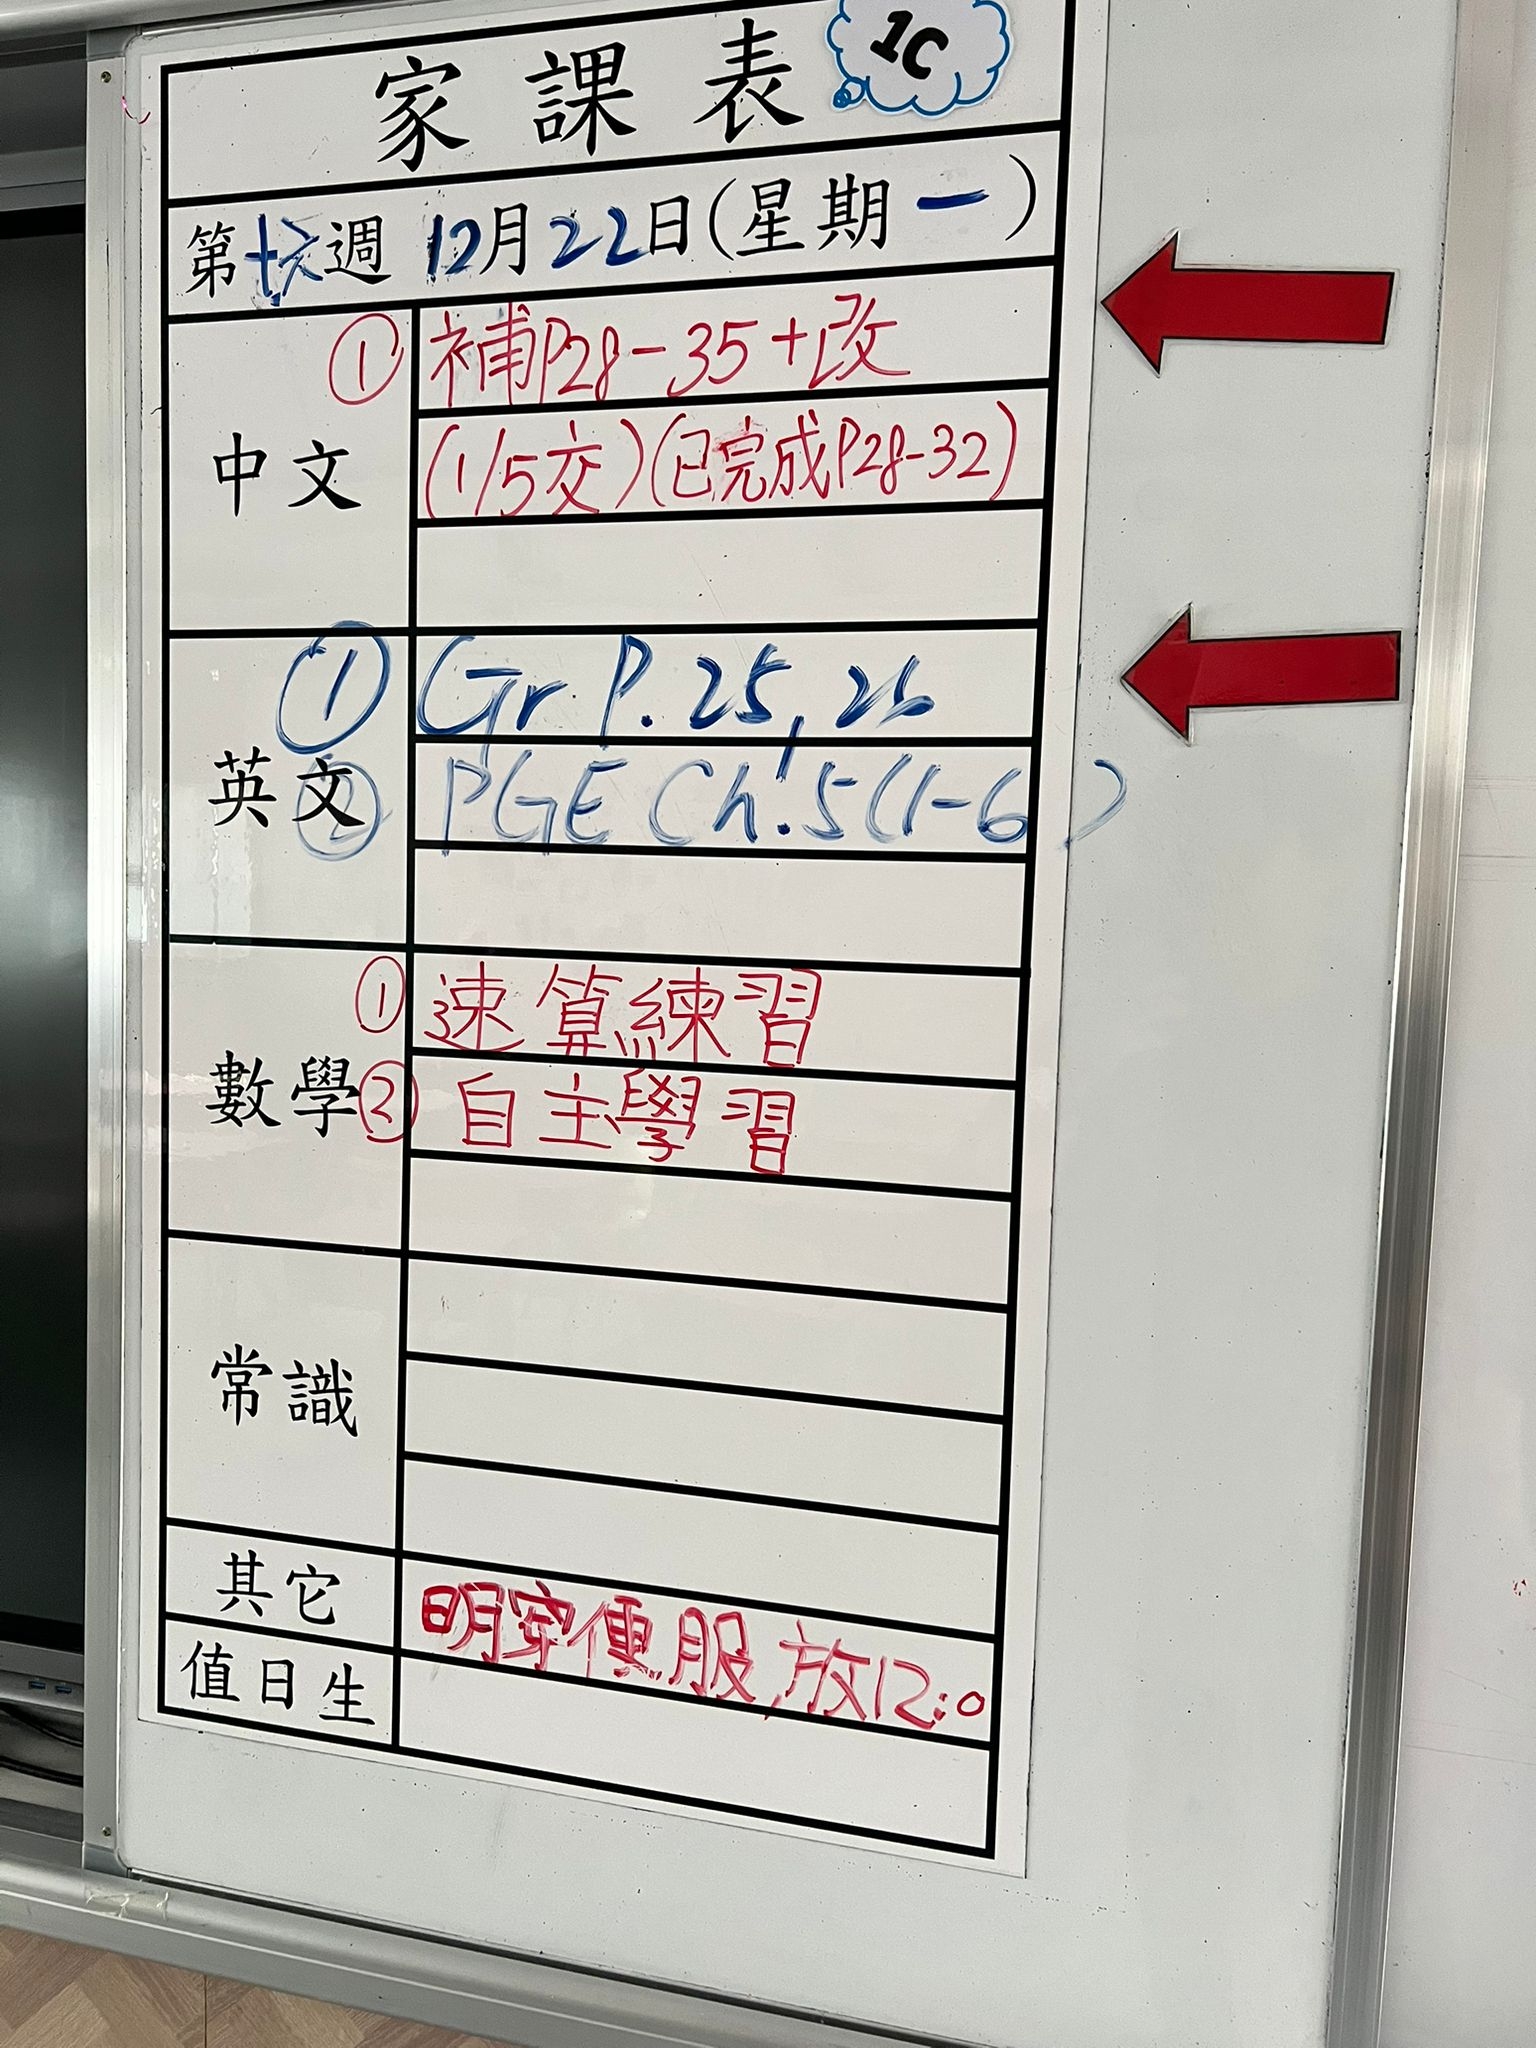 家課表 1C
第十六週 12月22日(星期一)
中文
① 補P28-35+改
(1/5交)(已完成P28-32)
英文
① Gr P.25, 26
② PGE Ch.5(1-6)
數學
① 速算練習
② 自主學習
常識
其它
明穿便服,放12:0
值日生